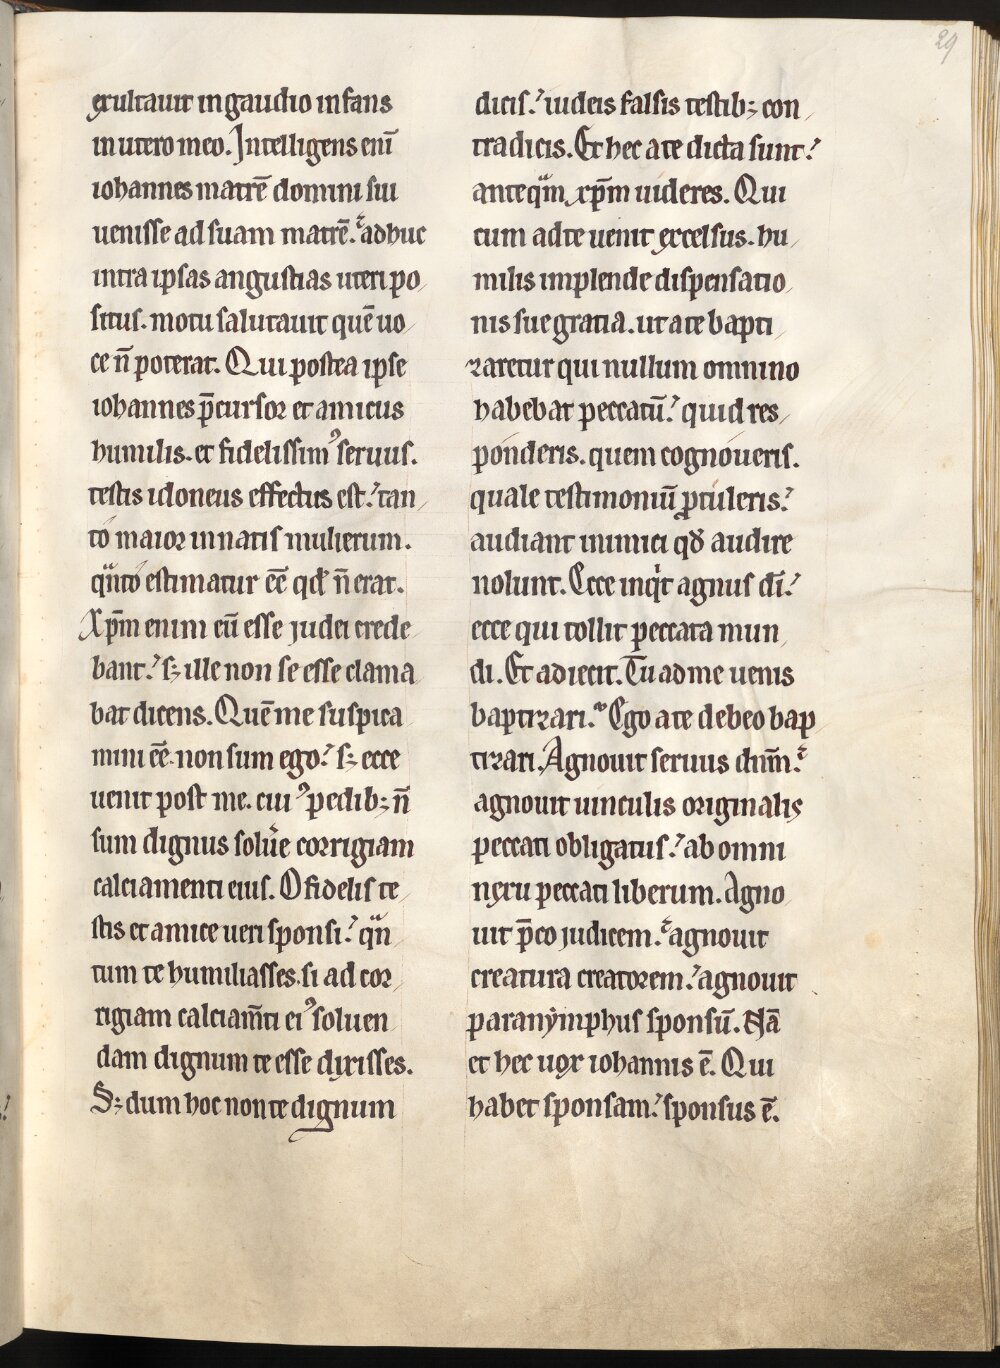 29
exultauit in gaudio infans
in utero meo. Intelligens eni̅
iohannes matre̅ domini sui
uenisse ad suam matre̅. adhuc
intra ipsas angustias uteri po
situs. motu salutauit que̅ uo
ce n̅ poterat. Qui postea ipse
iohannes p̅cursor et amicus
humilis. et fidelissim᾿ seruus.
testis idoneus effectus est.᾿ tan
to maior in natis mulierum.
qͣnto estimatur ee̅ qd̓ n̅ erat.
Xp̅m enim eu̅ esse judei crede
bant.᾿ s; ille non se esse clama
bat dicens. Que̅ me suspica
mini ee̅. non sum ego.᾿ s; ecce
uenit post me. cui᾿ pedib; n̅
sum dignus solue̓ corrigiam
calciamenti eius. O fidelis te
stis et amice ueri sponsi.᾿ qͣn
tum te humiliasses. si ad cor
rigiam calciam̅ti ei᾿ soluen
dam dignum te esse dixisses.
S; dum hoc non te dignum
dicis.᾿ iudeis falsis testib; con
tradicis. Et hec a te dicta sunt.᾿
anteqͣm xp̅m uideres. Qui
cum ad te uenit excelsus. hu
milis implende dispensatio
nis sue gratia. ut a te bapti
zaretur qui nullum omnino
habebat peccatu̅.᾿ quid res
ponderis. quem cognoueris.
quale testimoniu̅ ꝓtuleris.᾿
audiant inimici qd̓ audire
nolunt. Ecce inqͥt agnus di̅.᾿
ecce qui tollit peccata mun
di. Et adiecit. Tu ad me uenis
baptizari. Ego a te debeo bap
tizari. Agnouit seruus dnm̅.
agnouit uinculis originalis
peccati obligatus.᾿ ab omni
nexu peccati liberum. Agno
uit p̅co judicem. agnouit
creatura creatorem.᾿ agnouit
paranymphus sponsu̅. Na̅
et hec uox iohannis e̅. Qui
habet sponsam.᾿ sponsus e̅.